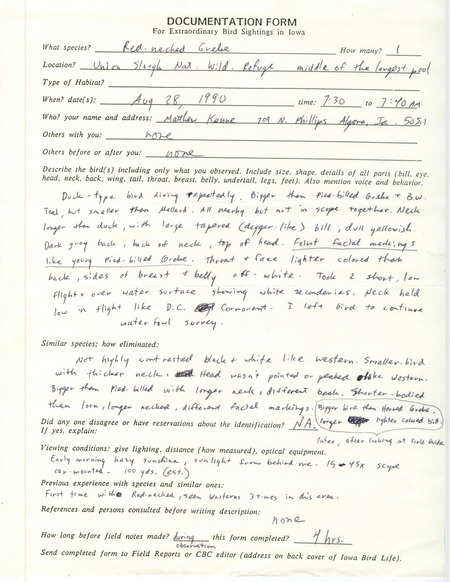 DOCUMENTATION FORM
For Extraordinary Bird Sightings in Iowa
What species? Red-necked Grebe How many? 1
Location? Union Slough Nat. Wild. Refuge middle of the longest pool
Type of Habitat?
When? date(s): Aug 28, 1990 time: 7:30 to 7:40 AM
Who? your name and address: Matthew Kenne 709 N. Phillips Algona, Ia. 50511
Others with you: none
Others before or after you: none
Describe the bird(s) including only what you observed. Include size, shape, details of all parts (bill, eye,
head, neck, back, wing, tail, throat, breast, belly, undertail, legs, feet). Also mention voice and behavior.
Duck-type bird diving repeatedly. Bigger than Pied-billed Grebe & B.W.
Teal, but smaller than Mallard. All nearby but not in scope together. Neck
longer than duck, with large tapered (dagger-like) bill, dull yellowish.
Dark gray back, back of neck, top of head. Faint facial markings
like young Pied-billed Grebe. Throat & face lighter colored than
back, sides of breast & belly off-white. Took 2 short, low
flights over water surface showing white secondaries. Neck held
low in flight like D.C. Cormorant. I left bird to continue
waterfowl survey.
Similar species; how eliminated:
Not highly contrasted black & white like western. Smaller bird
with thicker neck. Head wasn't pointed or peaked like Western.
Bigger than Pied-billed with longer neck, different beak. Shorter-bodied
than loon, longer necked, different facial markings. Bigger bird than Horned Grebe,
Did any one disagree or have reservations about the identification? NA longer lighter colored bill.
If yes, explain: later, after looking at field guide
Viewing conditions: give lighting, distance (how measured), optical equipment.
Early morning hazy sunshine, sunlight from behind me. 15-45x scope
car-mounted. 100 yds. (est.)
Previous experience with species and similar ones:
First time with Red-necked, seen Westerns 3 times in this area.
References and persons consulted before writing description:
none
How long before field notes made? during observation this form completed? 4 hrs.
Send completed form to Field Reports or CBC editor (address on back cover of Iowa Bird Life).